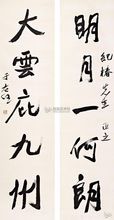 明月一何朗
紀椿先生 正之
大雲庇九州
于右任